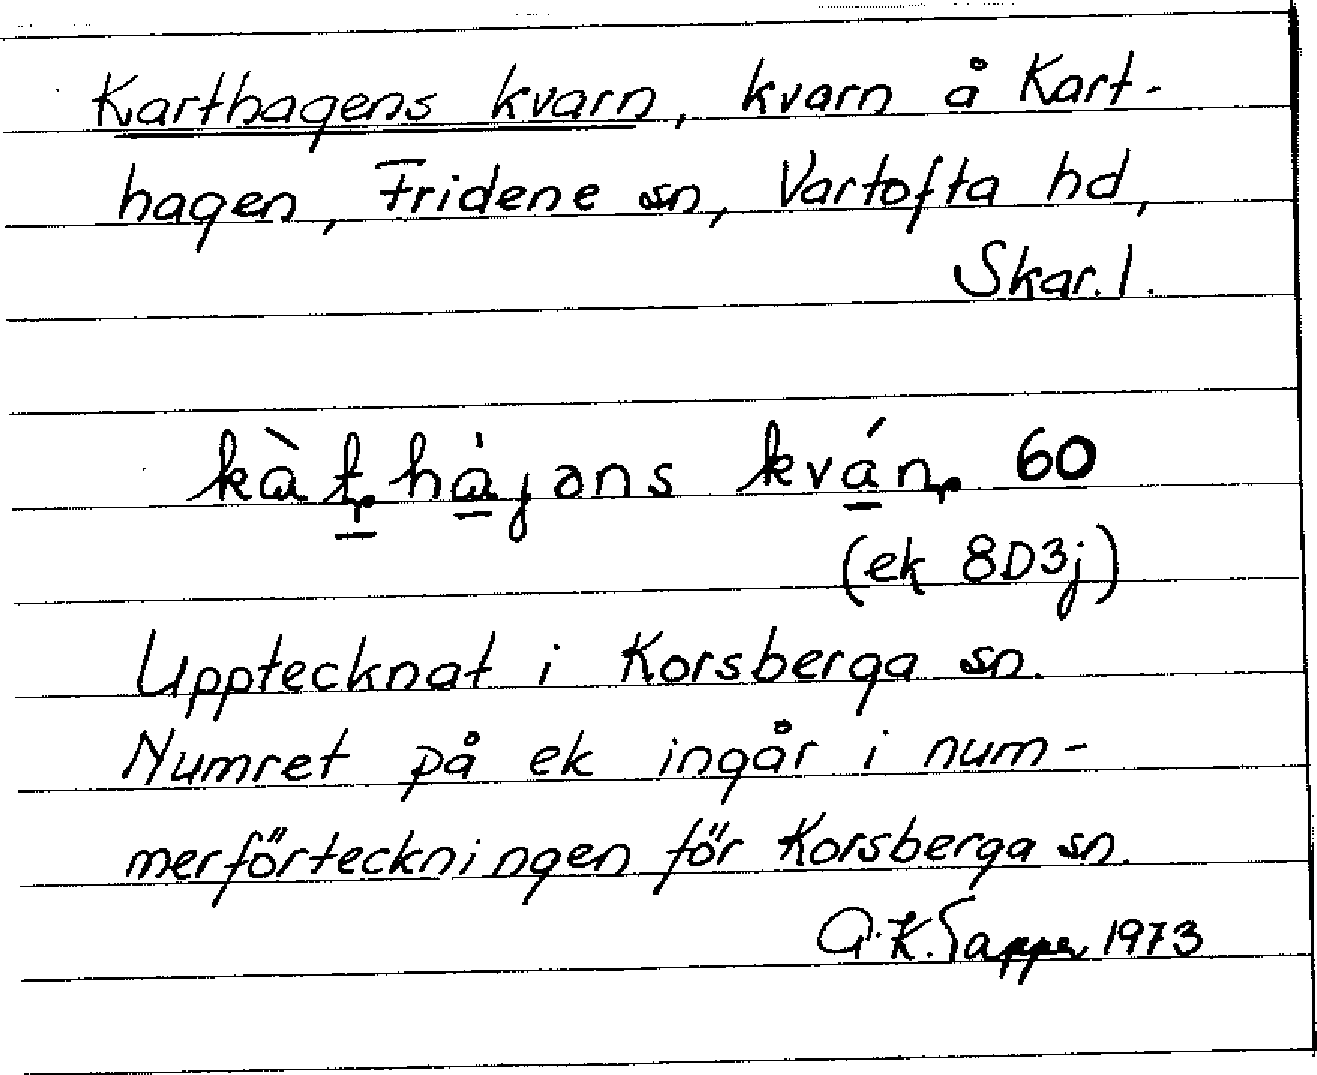 Karthagens kvarn, kvarn å Kart-
hagen, Fridene sn, Vartofta hd,
Skar. l.
kàʈhàjəns kván 60
(ek 8D3j)
Upptecknat i Korsberga sn.
Numret på ek ingår i num-
merförteckningen för Korsberga sn.
A.K. Sapper 1973